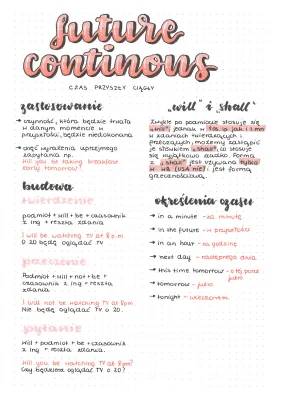 future
continous
CZAS PRZYSZŁY CIĄGŁY
zastosowanie
→ czynność, która będzie trwała
w danym momencie w
przyszłości, będzie niedokonana
→ chęć wyrażenia uprzejmego
zapytania np.
Will you be taking breakfast
early tomorrow?
budowa
twierdzenie
podmiot + will + be + czasownik
z ing + reszta zdania
I will be watching TV at 8 p.m
O 20 będę oglądać TV
przeczenie
Podmiot + will + not + be +
czasownik z ing + reszta
zdania
I will not be watching TV at 8pm
Nie będę oglądać TV
pytanie
Will + podmiot + be + czasownik
z ing + reszta zdania.
Will you be watching TV at 8pm?
Czy będziesz oglądać TV o 20?
„will" i „shall"
Zwykle po podmiocie stosuje się
„will", jednak w 1 os. l.p. jak i l. mn
w zdaniach twierdzących i
przeczących, możemy zastąpić
je słowem „shall", co stosuje
się wyjątkowo rzadko. Forma
z „shall" jest używana tylko
w WB (USA nie) i jest formą
grzecznościową.
określenia czasu
→ in a minute - za minutę
→ in the future - w przyszłości
→ in an hour - za godzinę
→ next day - następnego dnia
→ this time tomorrow - o tej porze
jutro
→ tomorrow - jutro
→ tonight - wieczorem